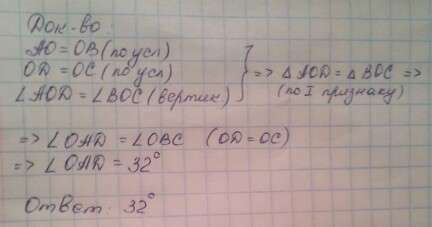 Док-во:
АО = ОВ (по усл)
OD = OC (по усл)
∠AOD = ∠BOC (вертик.) } => △AOD = △BOC =>
(по I признаку)
=> ∠OAD = ∠OBC (OD = OC)
=> ∠OAD = 32°
Ответ: 32°